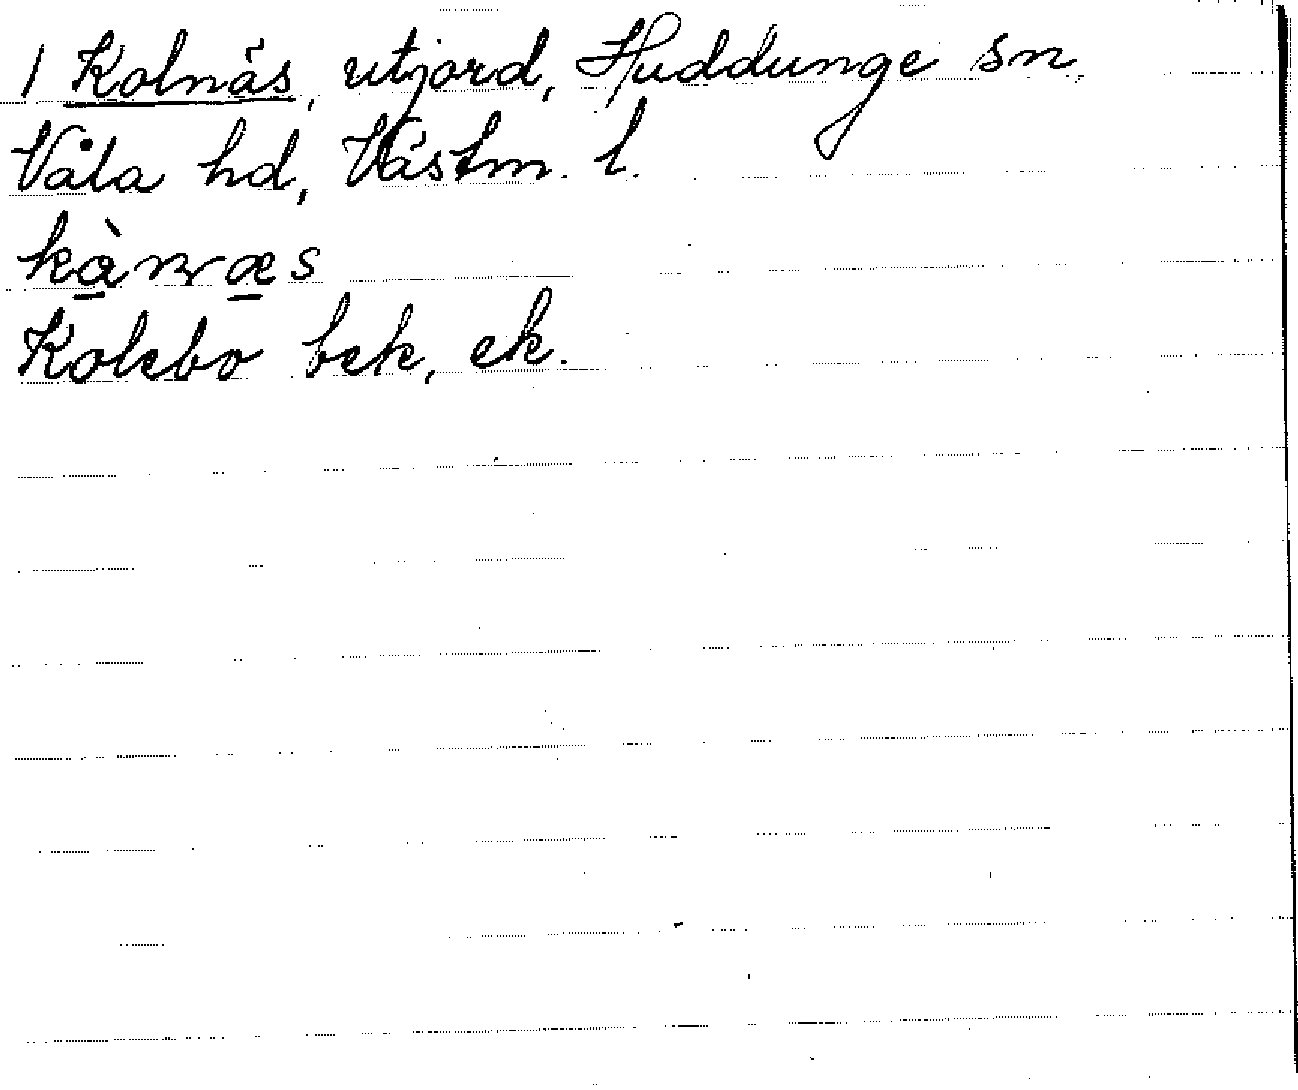 1 Kolnäs, utjord, Huddunge sn.
Våla hd, Västm. l.
Kolebo bek, ek.